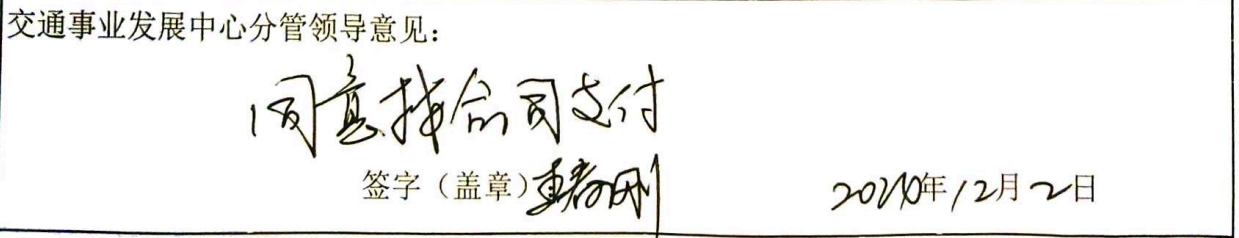 交通事业发展中心分管领导意见：
同意按合同支付
签字（盖章）
年12月2日